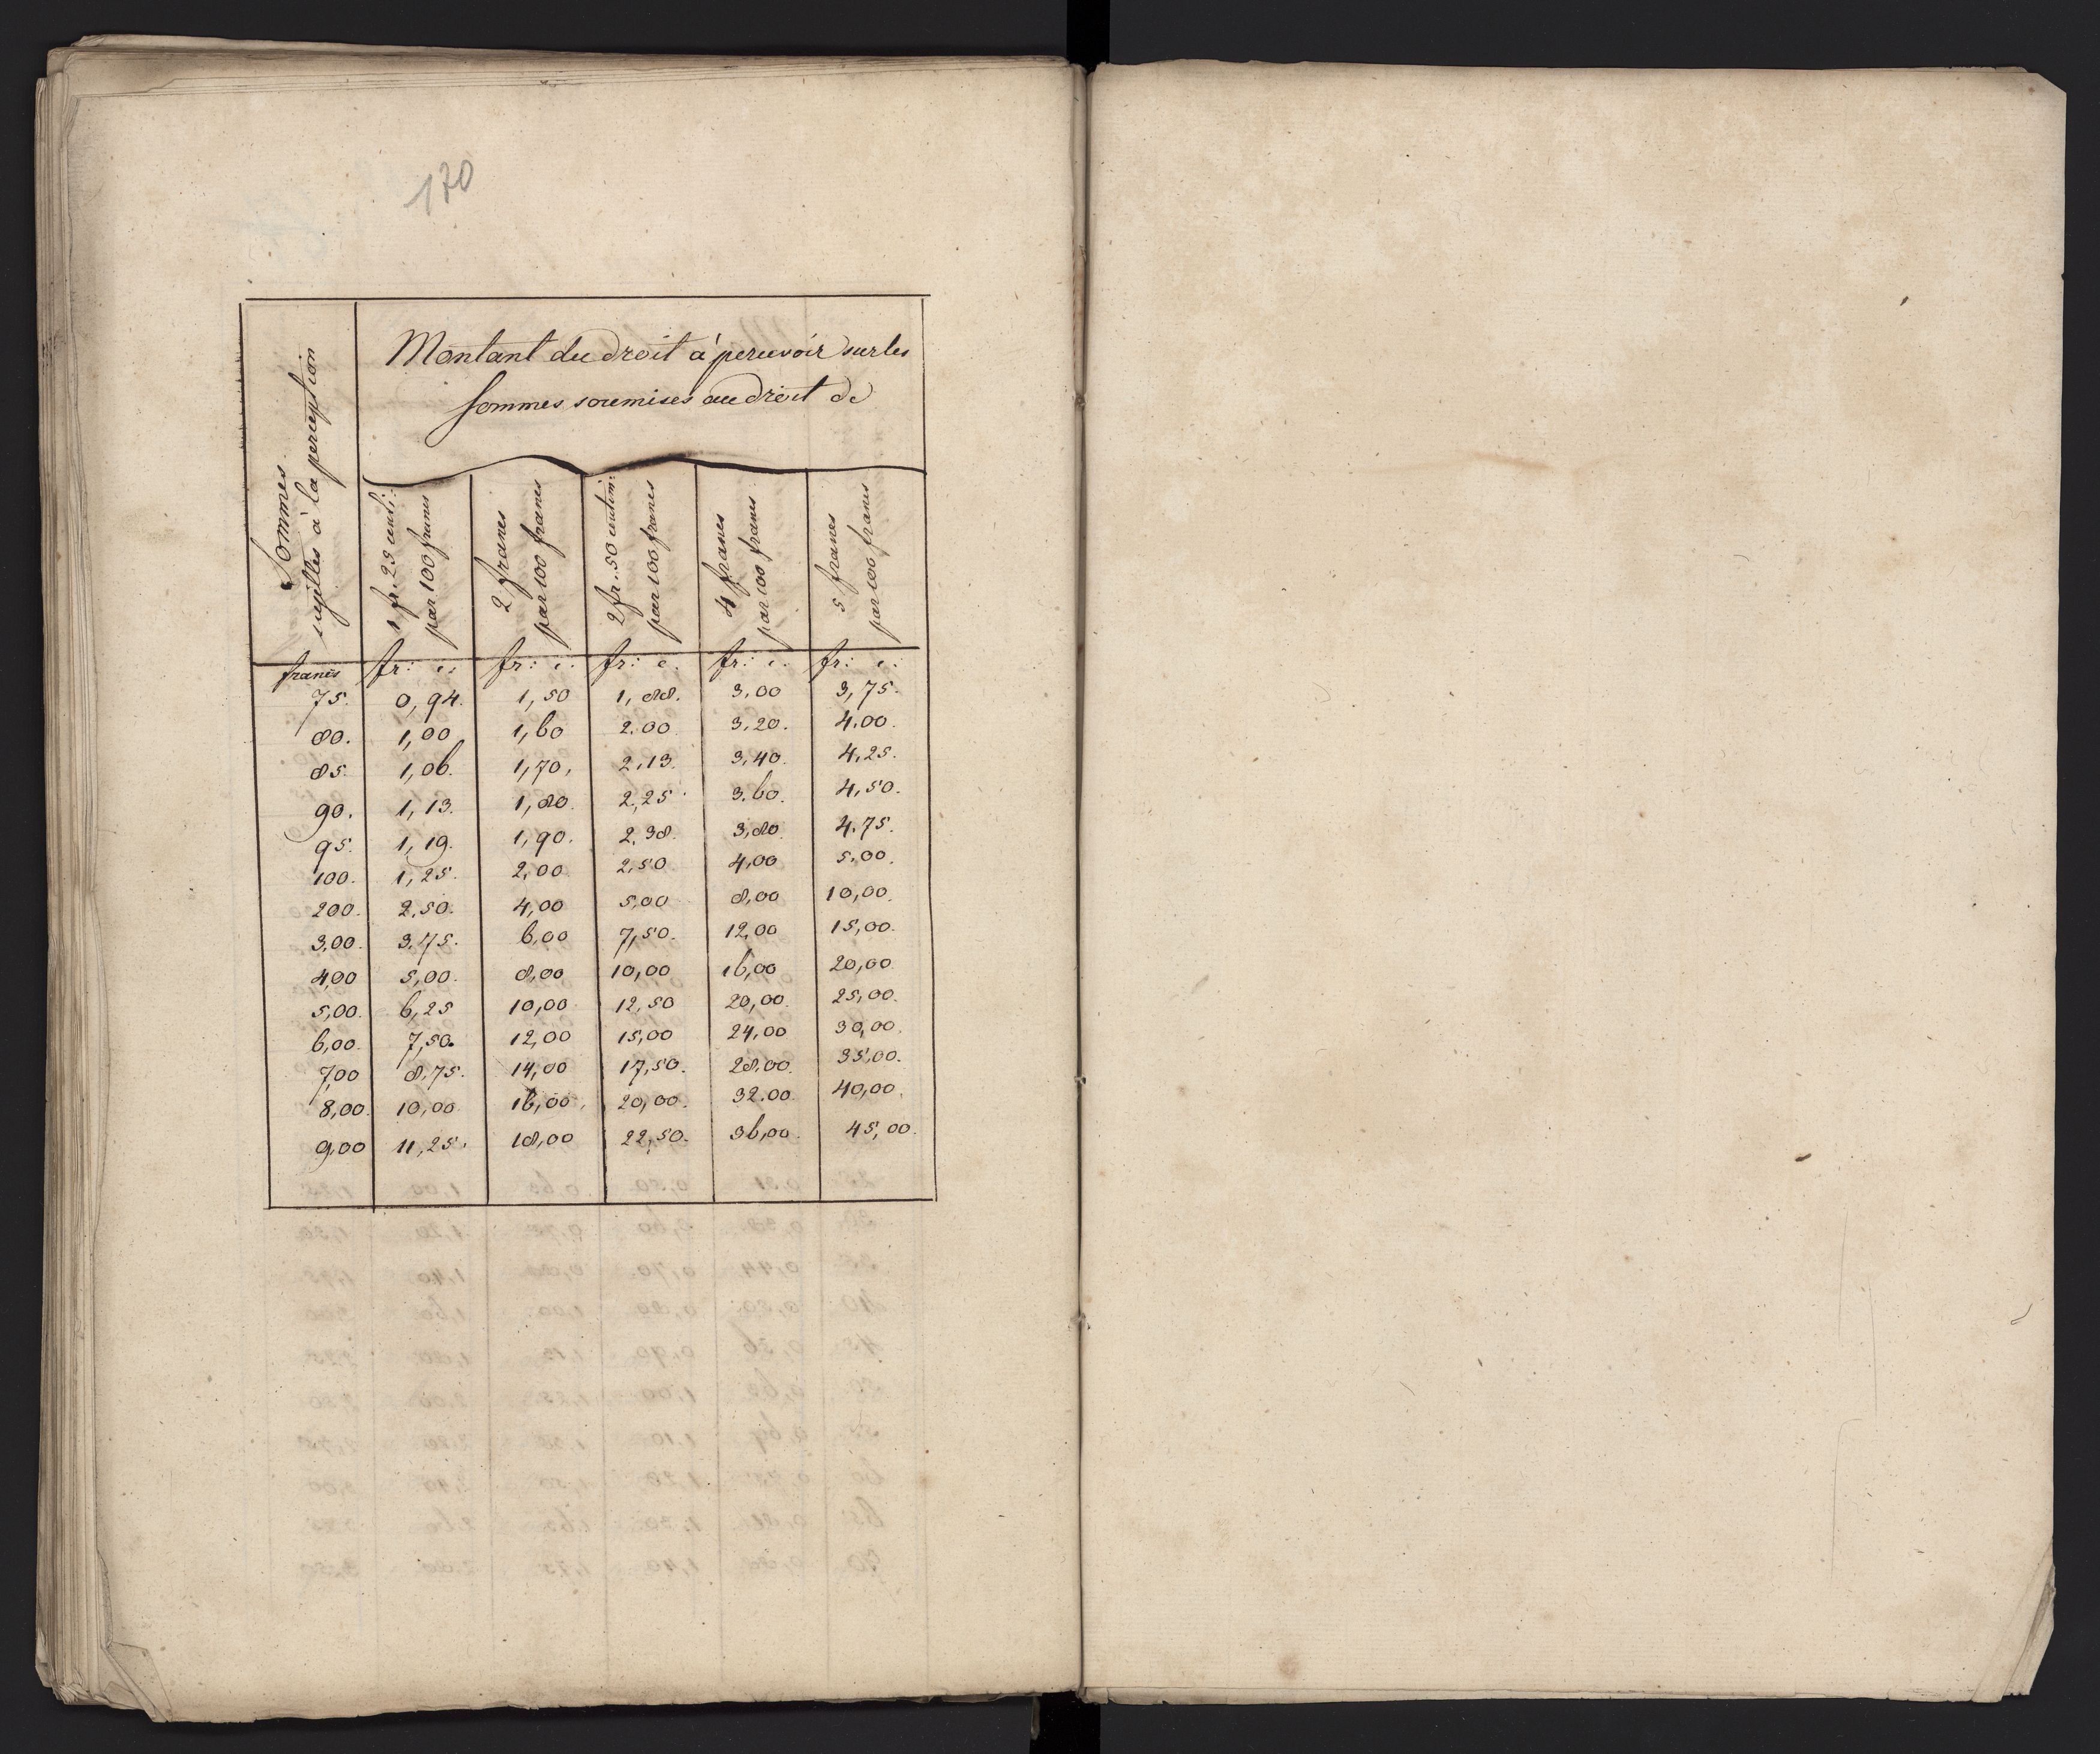 170
Montant du droit à percevoir sur les
sommes soumises au droit de
Sommes
sujettes à la perception
1 fr. 25 centi:
par 100 francs
2 francs
par 100 francs
2 fr. 50 centim:
par 100 francs
4 francs
par 100 francs
5 francs
par 100 francs
francs fr: c: fr: c: fr: c. fr: c. fr: c:
75. 0,94. 1,50 1,88. 3.00 3,75.
80. 1,00 1,60 2.00 3.20. 4.00.
85. 1,06. 1,70, 2,13. 3,40. 4.25.
90. 1,13. 1,80. 2,25 3.60. 4,50.
95. 1,19. 1,90. 2.38. 3,80. 4.75.
100. 1,25. 2,00. 2,50 4,00 5.00.
200. 2,50. 4,00 5,00 8,00 10,00.
3,00. 3.75. 6,00 7,50. 12,00 15,00.
4,00 5,00. 8,00 10,00 16,00 20,00
5,00. 6,25 10,00 12,50 20,00. 25,00.
6,00. 7,50. 12,00 15,00 24,00 30,00.
7,00 8,75. 14,00 17,50. 28,00. 35,00.
8,00. 10,00 16,00, 20,00. 32.00 40,00.
9,00 11,25. 18,00 22,50. 36,00. 45,00.